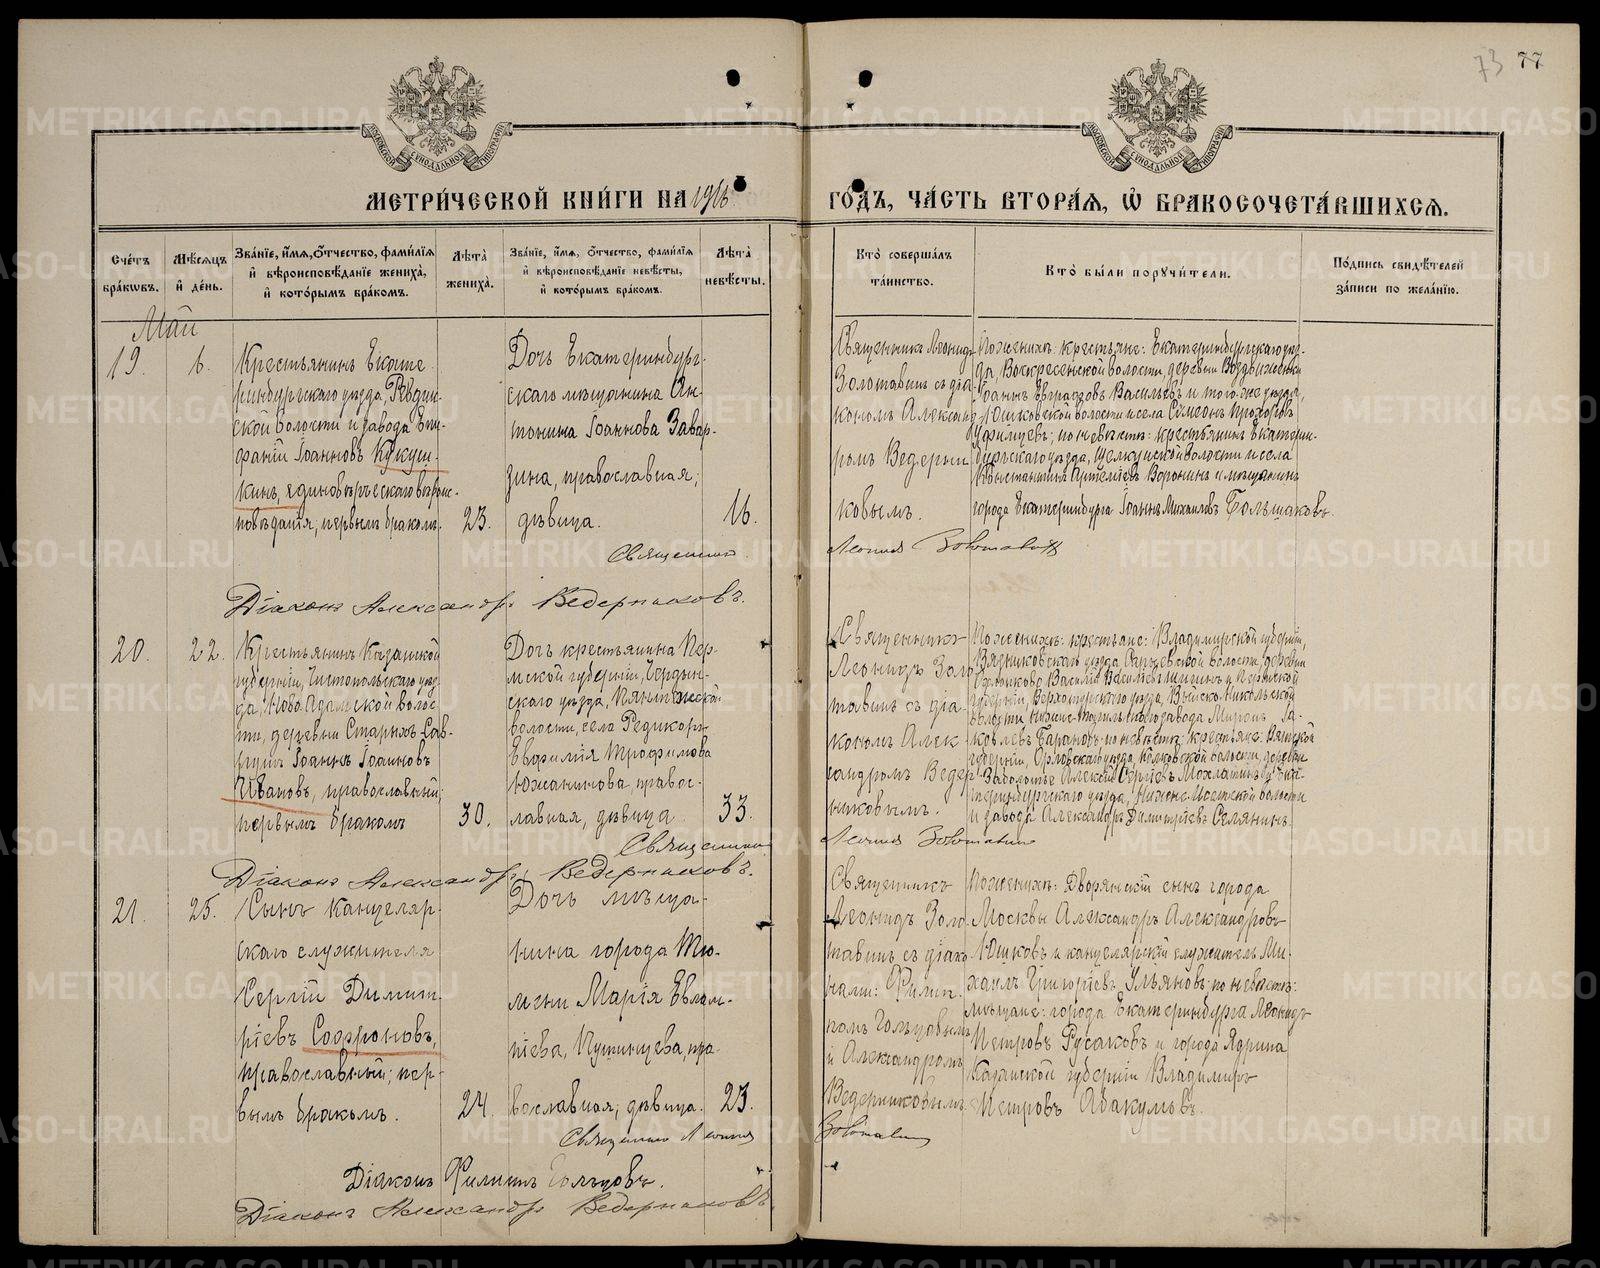 73 77
МОСКОВСКОЙ СѴНОДАЛЬНОЙ ТИПОГРАФІИ
МОСКОВСКОЙ СѴНОДАЛЬНОЙ ТИПОГРАФІИ
МЕТРИ́ЧЕСКОЙ КНИ́ГИ НА 1916 ГО́ДЪ, ЧА́СТЬ ВТОРА́Я, Ѽ БРАКОСОЧЕТА́ВШИХСЯ.
Сче́тъ бра́кωвъ.
Мѣ́сяцъ и҆ де́нь.
Зва́нїе, и҆́мя, ѻ҆́тчество, фами́лїя и҆ вѣроисповѣ́данїе жениха̀, и҆ кото́рымъ бра́комъ.
Лѣ́та жениха̀.
Зва́нїе, и҆́мя, ѻ҆́тчество, фами́лїя и҆ вѣроисповѣ́данїе невѣ́сты, и҆ кото́рымъ бра́комъ.
Лѣ́та невѣ́сты.
Кто̀ соверша́лъ та́инство.
Кто̀ бы́ли порꙋчи́тели.
По́дпись свидѣ́телей за́писи по жела́нїю.
Май
19. 6.
Крестьянинъ Екате-
ринбургскаго уѣзда, Ревдин-
ской волости и завода Епи-
фаній Іоанновъ Кукуш-
кинъ, единовѣрческаго вѣроис-
повѣданія, первымъ бракомъ.
23.
Дочь Екатеринбург-
скаго мѣщанина Ан-
тонина Іоаннова Завар-
зина, православная,
дѣвица.
16.
Священникъ Леонидъ
Золотавинъ съ діа-
кономъ Александ-
ромъ Ведерни-
ковымъ.
По женихѣ: крестьяне: Екатеринбургскаго уѣз-
да, Воскресенской волости, деревни Воздвиженки
Іоаннъ Евграфовъ Васильевъ и того же уѣзда,
Юшковской волости и села Симеонъ Прохоровъ
Уфимцевъ; по невѣстѣ: крестьянинъ Екатерин-
бургскаго уѣзда, Щелкунской волости и села
Воронинъ и мѣщанинъ
города Екатеринбурга Іоаннъ Михаиловъ Большаковъ.
Священникъ Леонидъ Золотавинъ
Діаконъ Александръ Ведерниковъ.
20. 22.
Крестьянинъ Казанской
губерніи, Чистопольскаго уѣз-
да, Ново-Адамской волос-
ти, деревни Старыхъ Сав-
рушъ Іоаннъ Іоанновъ
Ивановъ, православный,
первымъ бракомъ
30.
Дочь крестьянина Пер-
мской губерніи, Чердын-
скаго уѣзда, Пянтежской
волости, села Редикоръ
Евфимія Трофимова
Южанинова, правос-
лавная, дѣвица
33.
Священникъ
Леонидъ Золо-
тавинъ съ діа-
кономъ Алек-
сандромъ Ведер-
никовымъ.
По женихѣ: крестьяне: Владимирской губерніи,
Вязниковскаго уѣзда, Сарыевской волости, деревни
Василій Васильевъ и Пермской
губерніи, Верхотурскаго уѣзда, Выйско-Никольской
волости Нижне-Тагильскаго завода Миронъ Іа-
ковлевъ Барановъ; по невѣстѣ: крестьяне: Вятской
губерніи, Орловскаго уѣзда, волости, деревни
Заболотье Алексій Сергіевъ и Ека-
теринбургскаго уѣзда, Нижне-Исетской волости
и завода Александръ Димитріевъ Селянинъ
Священникъ Леонидъ Золотавинъ
Діаконъ Александръ Ведерниковъ.
21. 25.
Сынъ канцеляр-
скаго служителя
Сергій Димит-
ріевъ Софроновъ,
православный, пер-
вымъ бракомъ.
24.
Дочь мѣща-
нина города Тю-
мени Марія Евлам-
піева, Пушищева, пра-
вославная, дѣвица.
23.
Священникъ
Леонидъ Золо-
тавинъ съ діако-
нами: Филип-
помъ Гольцовымъ
и Александромъ
Ведерниковымъ.
По женихѣ: Дворянскій сынъ города
Москвы Александръ Александровъ
Юшковъ и канцелярскій служитель Ми-
хаилъ Григоріевъ Ульяновъ; по невѣстѣ:
мѣщане: города Екатеринбурга Леонидъ
Петровъ Русаковъ и города Ядрина
Казанской губерніи Владимиръ
Петровъ Абакумовъ.
Священникъ Леонидъ Золотавинъ
Діаконъ Филиппъ Гольцовъ.
Діаконъ Александръ Ведерниковъ.
METRIKI.GASO-URAL.RU